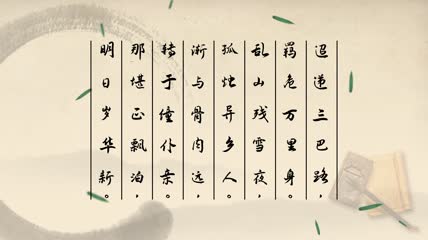 迢递三巴路，
羁危万里身。
乱山残雪夜，
孤烛异乡人。
渐与骨肉远，
转于僮仆亲。
那堪正飘泊，
明日岁华新。